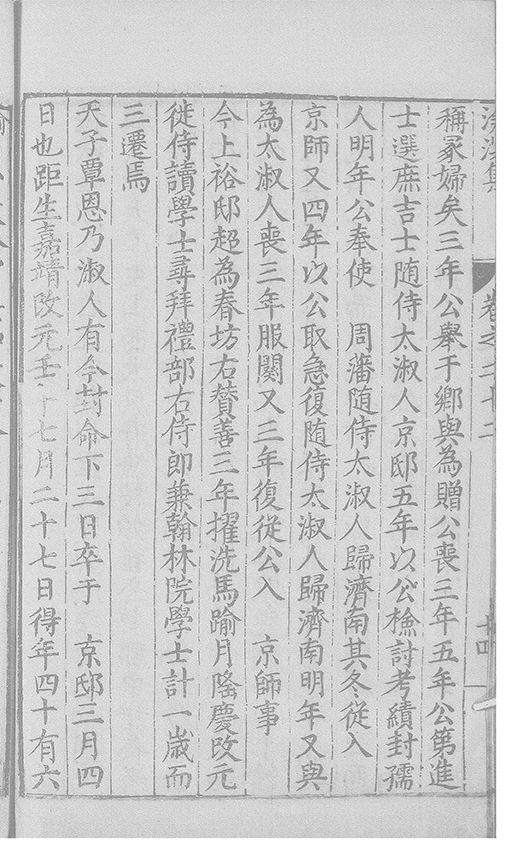 滄溟集 卷之二十二
稱冢婦矣三年公舉于鄉與為贈公喪三年五年公第進
士選庶吉士随侍太淑人京邸五年以公檢討考績封孺
人明年公奉使 周藩随侍太淑人歸濟南其冬從入
京師又四年以公取急復随侍太淑人歸濟南明年又與
為太淑人喪三年服闋又三年復從公入 京師事
今上裕邸超為春坊右贊善三年擢洗馬踰月隆慶改元
徙侍讀學士尋拜禮部右侍郎兼翰林院學士計一歲而
三遷焉
天子覃恩乃淑人有今封命下三日卒于 京邸三月四
日也距生嘉靖改元壬午七月二十七日得年四十有六